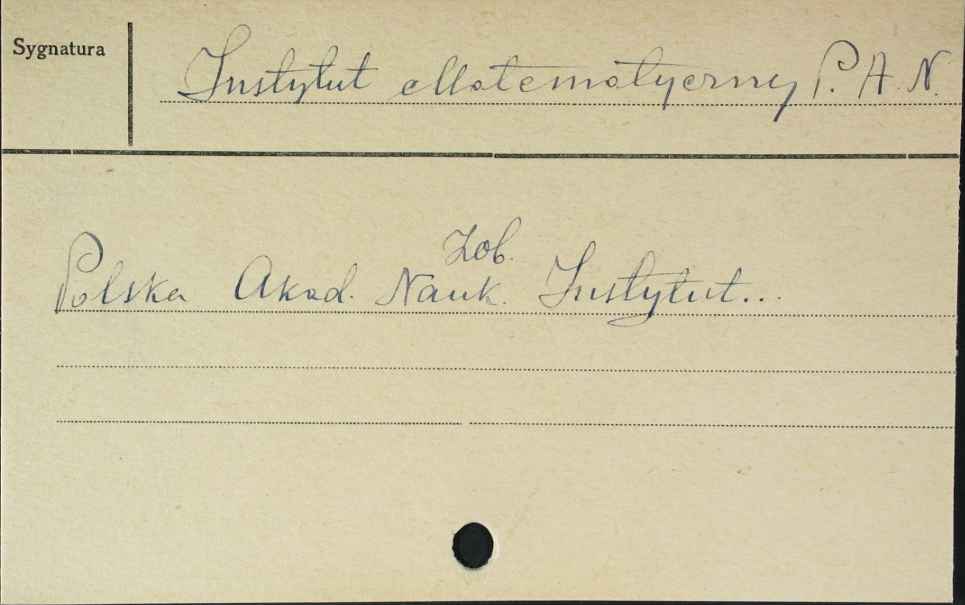 Sygnatura
Instytut Matematyczny P. A. N.
Zob.
Polska Akad. Nauk. Instytut...